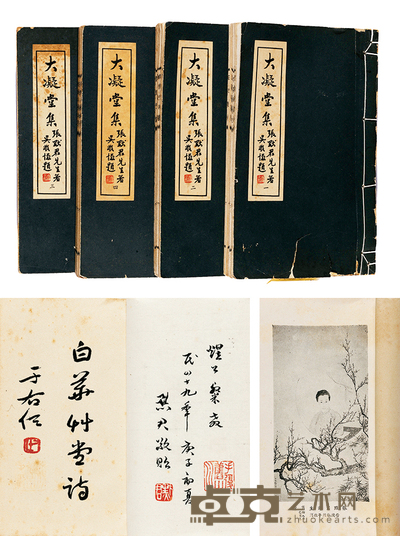 大凝堂集
張默君先生著
吳敬恆題
三
大凝堂集
張默君先生著
吳敬恆題
四
大凝堂集
張默君先生著
吳敬恆題
二
大凝堂集
張默君先生著
吳敬恆題
一
白華艸堂詩
于右任
民四十九年庚子初夏
默君敬貽
卓克艺术网
zhuokearts.com